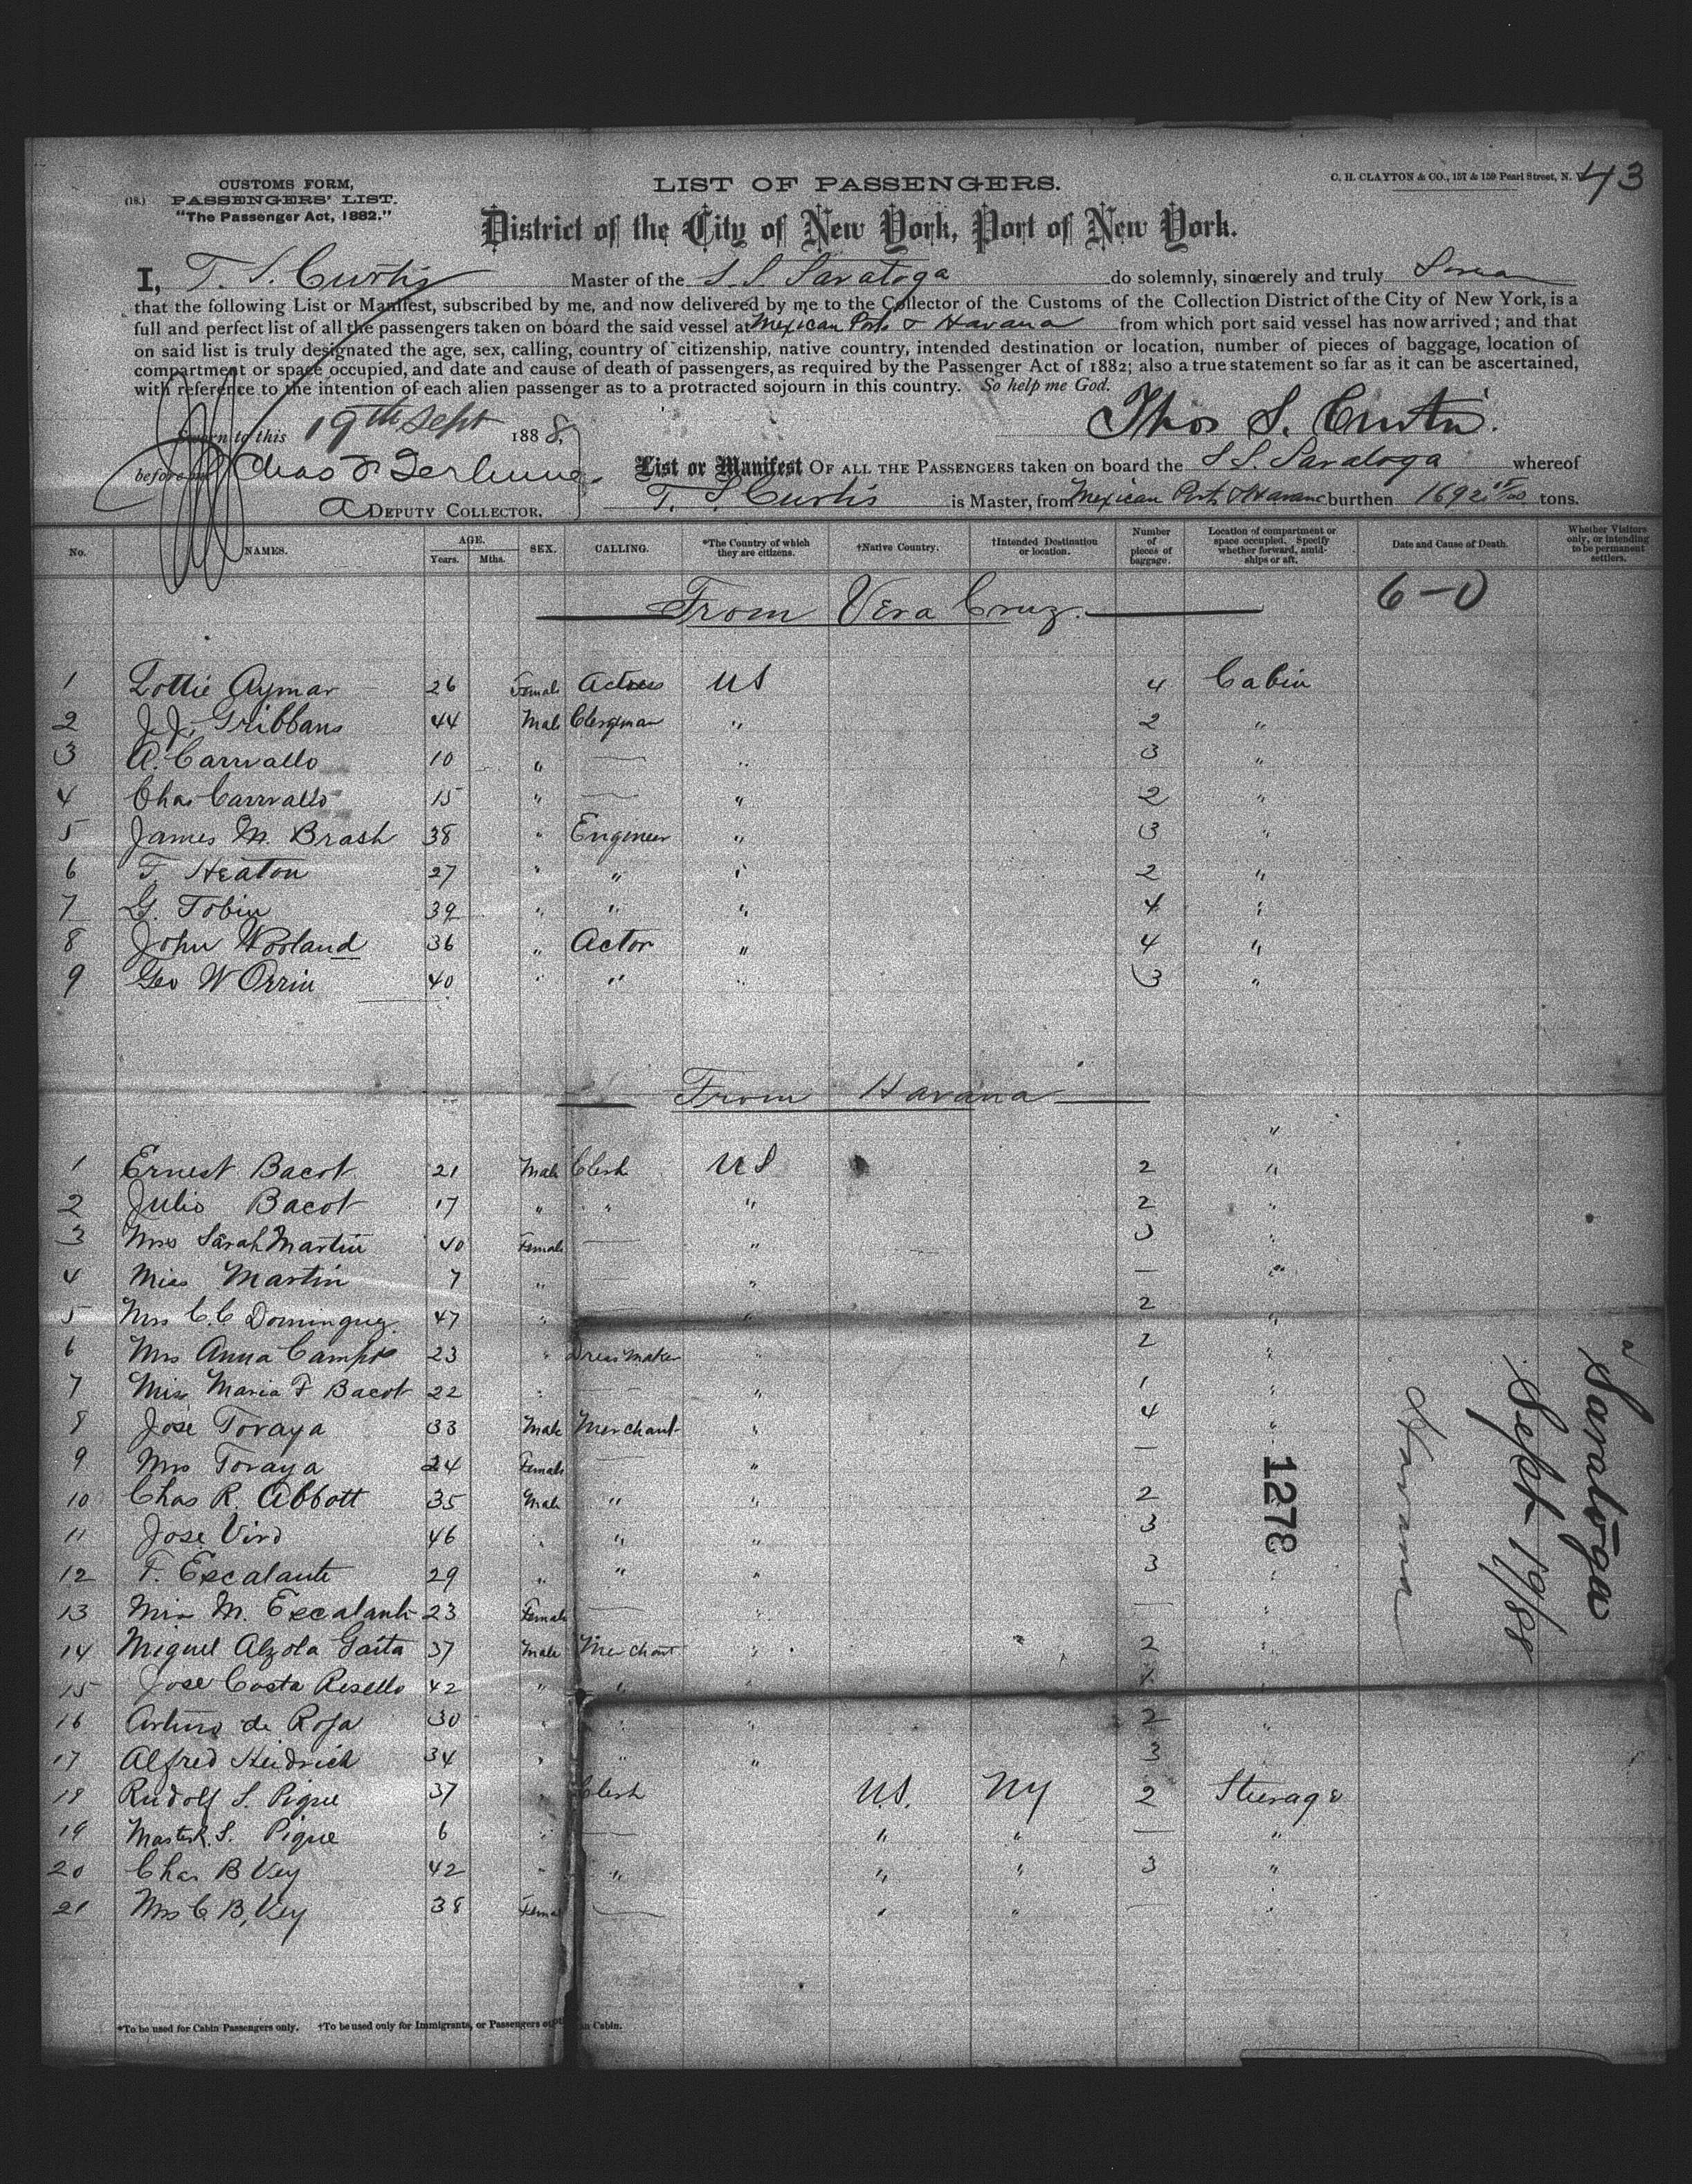 CUSTOMS FORM,
(18.) PASSENGERS' LIST.
"The Passenger Act, 1882."
LIST OF PASSENGERS.
C. H. CLAYTON & CO., 157 & 159 Pearl Street, N. Y.
43
District of the City of New York, Port of New York.
I, T. S. Curtis Master of the S.S. Saratoga do solemnly, sincerely and truly Swear
that the following List or Manifest, subscribed by me, and now delivered by me to the Collector of the Customs of the Collection District of the City of New York, is a
full and perfect list of all the passengers taken on board the said vessel at Mexican Ports & Havana from which port said vessel has now arrived; and that
on said list is truly designated the age, sex, calling, country of citizenship, native country, intended destination or location, number of pieces of baggage, location of
compartment or space occupied, and date and cause of death of passengers, as required by the Passenger Act of 1882; also a true statement so far as it can be ascertained,
with reference to the intention of each alien passenger as to a protracted sojourn in this country. So help me God.
Sworn to this 19th Sept 1888,
Thos S. Curtis
before me Chas
DEPUTY COLLECTOR.
List or Manifest OF ALL THE PASSENGERS taken on board the S.S. Saratoga whereof
T. S. Curtis is Master, from Mexican Ports & Havana burthen 1692 tons.
No. NAMES. AGE. Years. Mths. SEX. CALLING. *The Country of which they are citizens. †Native Country. †Intended Destination or location. Number of pieces of baggage. Location of compartment or space occupied. Specify whether forward, amidships or aft. Date and Cause of Death. Whether Visitors only, or intending to be permanent settlers.
From Vera Cruz.
6-0
1 Lottie Aymar 26 Female Actress US 4 Cabin
2 J. J. Gribbans 44 Male Clergman " 2 "
3 A. Carrvallo 10 " — " 3 "
4 Chas Carrvallo 15 " — " 2 "
5 James M. Brash 38 " Engineer " 3 "
6 T Heaton 27 " " " 2 "
7 G. Tobin 39 " " " 4 "
8 John Worland 36 " Actor " 4 "
9 Geo W Orrin 40 " " " 3 "
From Havana
"
1 Ernest Bacot 21 Male Clerk US 2 "
2 Julio Bacot 17 " " " 2 "
3 Mrs Sarah Martin 40 Female — " 3 "
4 Miss Martin 7 " — " — "
5 Mrs C. C Dominguez 47 " — " 2 "
6 Mrs Anna Campos 23 " Dress maker " 2 "
7 Miss Maria F Bacot 22 " — " 1 "
8 Jose Toraya 33 Male Merchant " 4 "
9 Mrs Toraya 24 Female — " — "
10 Chas R. Abbott 35 Male " " 2
11 Jose Viro 46 " " " 3
12 F. Escalante 29 " " " 3 "
13 M. Escalante 23 Female — " — "
14 Miguel Alzola Gaita 37 Male Merchant " 2 "
15 Jose Costa Resello 42 " " "
16 Arturo de Rosa 30 " " " 2 "
17 Alfred Heidrich 34 " " " 3
18 Rudolf S. Pique 37 " Clerk U.S. NY 2 Steerage
19 Master R. S. Pique 6 " — " " — "
20 Chas B Vey 42 " " " " 3 "
21 Mrs C. B. Vey 38 Female — " " — "
1278
Havana
Sept 19/88
Saratoga
*To be used for Cabin Passengers only. †To be used only for Immigrants, or Passengers Cabin.